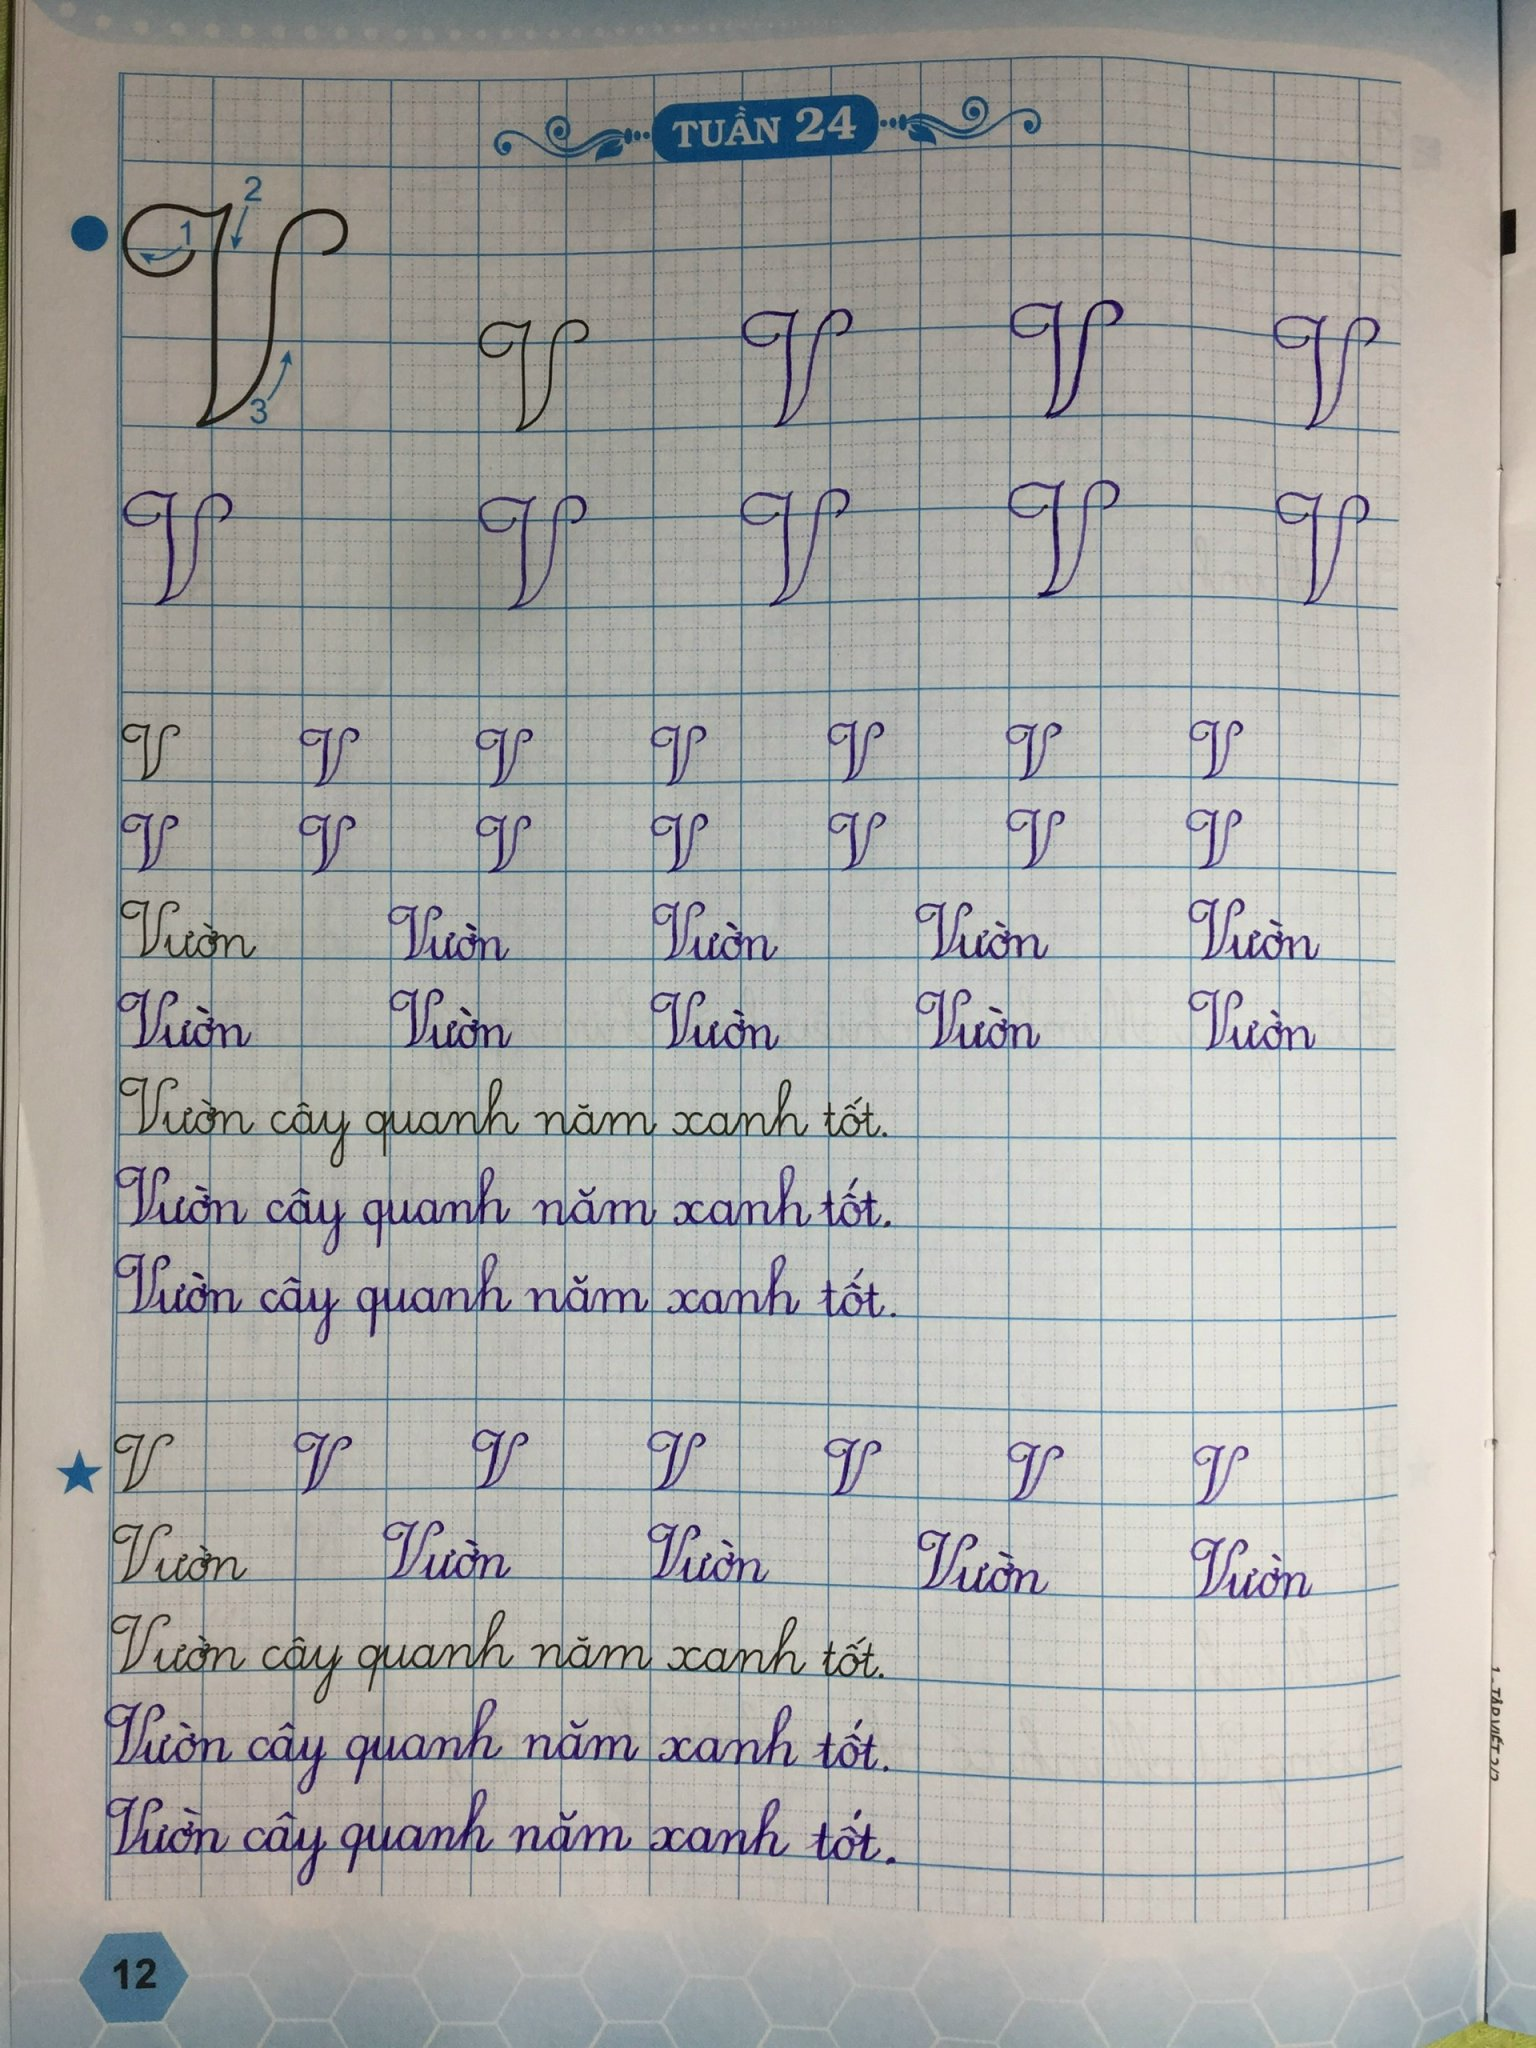 TUẦN 24
1 2 3 V
V V V V
V V V V V
V V V V V V V
V V V V V V V
Vườn Vườn Vườn Vườn Vườn
Vườn Vườn Vườn Vườn Vườn
Vườn cây quanh năm xanh tốt.
Vườn cây quanh năm xanh tốt.
Vườn cây quanh năm xanh tốt.
V V V V V V V
Vườn Vườn Vườn Vườn Vườn
Vườn cây quanh năm xanh tốt.
Vườn cây quanh năm xanh tốt.
Vườn cây quanh năm xanh tốt.
12
1 - TẬP VIẾT 2/2